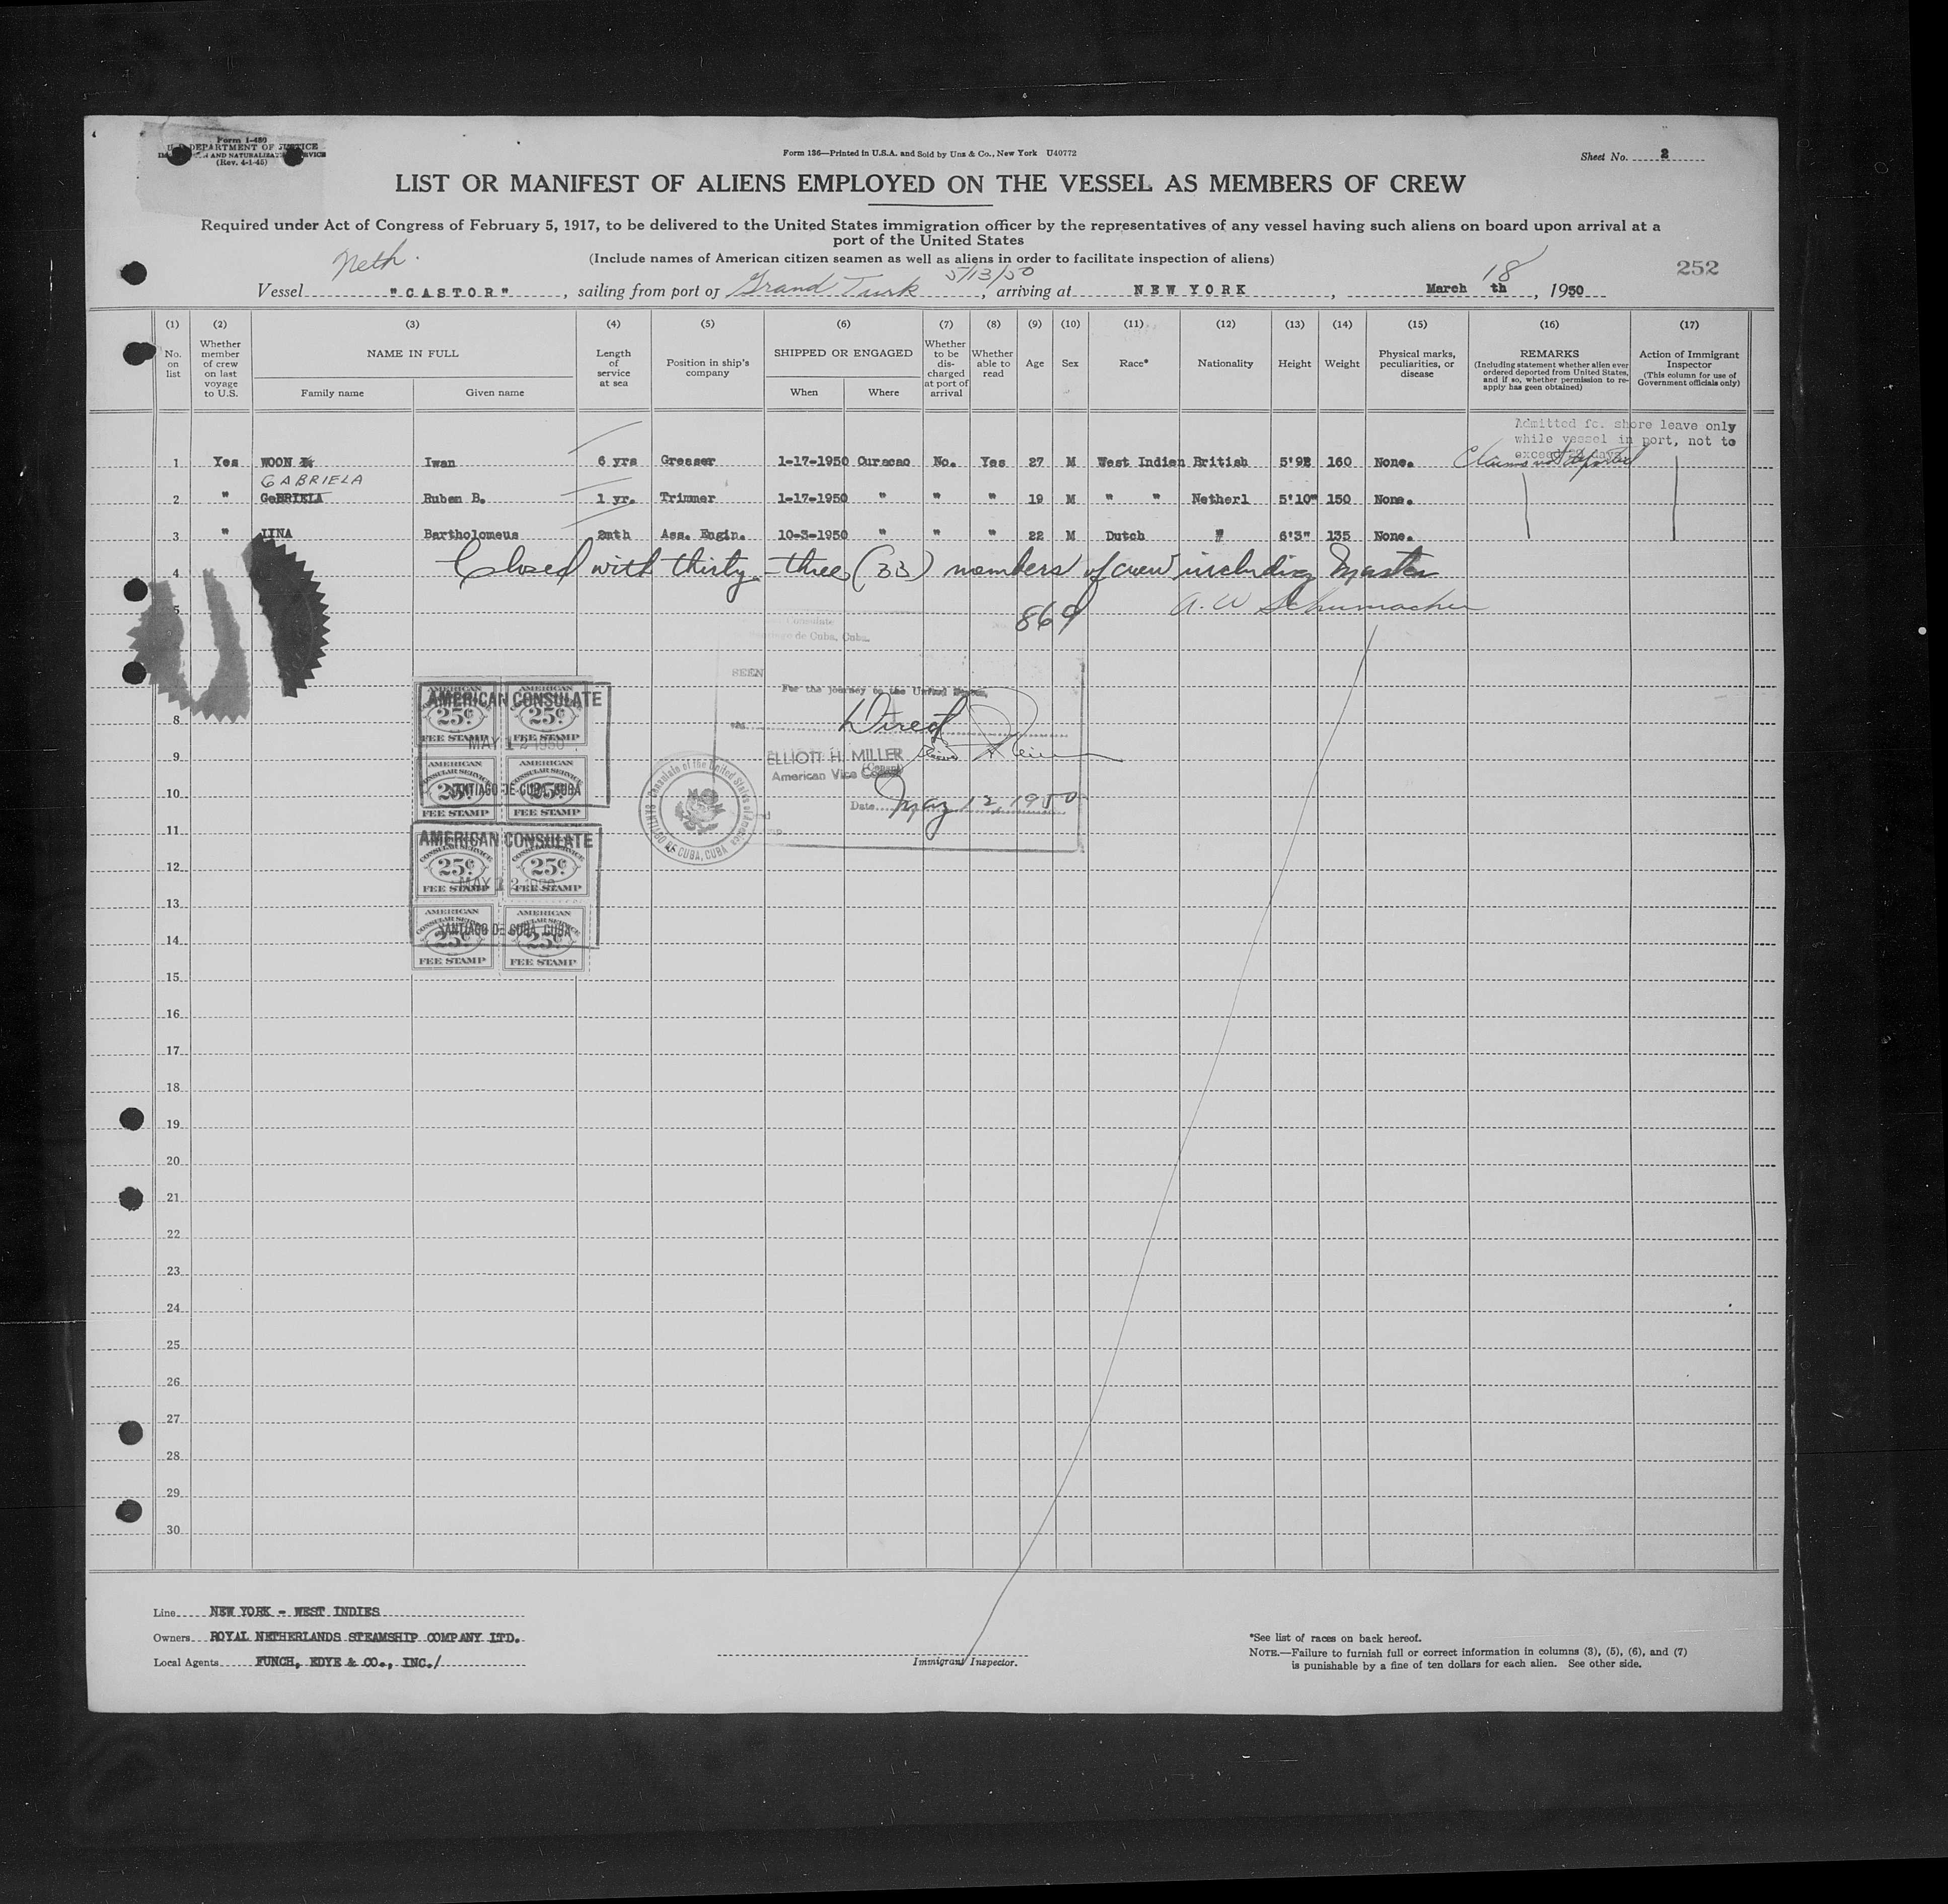 Form I-480
U. S. DEPARTMENT OF JUSTICE
IMMIGRATION AND NATURALIZATION SERVICE
(Rev. 4-1-45)
Form 136—Printed in U.S.A. and Sold by Unz & Co., New York U40772
Sheet No. 2
LIST OR MANIFEST OF ALIENS EMPLOYED ON THE VESSEL AS MEMBERS OF CREW
Required under Act of Congress of February 5, 1917, to be delivered to the United States immigration officer by the representatives of any vessel having such aliens on board upon arrival at a
port of the United States
(Include names of American citizen seamen as well as aliens in order to facilitate inspection of aliens)
Neth.
5/13/50
18
252
Vessel "CASTOR", sailing from port of Grand Turk, arriving at NEW YORK, March th, 1950
(1) (2) (3) (4) (5) (6) (7) (8) (9) (10) (11) (12) (13) (14) (15) (16) (17)
No. on list
Whether member of crew on last voyage to U.S.
NAME IN FULL
Family name
Given name
Length of service at sea
Position in ship's company
SHIPPED OR ENGAGED
When
Where
Whether to be discharged at port of arrival
Whether able to read
Age
Sex
Race*
Nationality
Height
Weight
Physical marks, peculiarities, or disease
REMARKS
(Including statement whether alien ever ordered deported from United States, and if so, whether permission to reapply has geen obtained)
Action of Immigrant Inspector
(This column for use of Government officials only)
Admitted fo. shore leave only
while vessel in port, not to
exceed 29 days
Claims not deported
1 Yes WOON Iwan 6 yrs Greaser 1-17-1950 Curacao No. Yes 27 M West Indien British 5'9" 160 None.
GABRIELA
2 " GeBRIELA Ruben B. 1 yr. Trimmer 1-17-1950 " " " 19 M " " Netherl 5'10" 150 None.
3 " LINA Bartholomeus 2mth Ass. Engin. 10-3-1950 " " " 22 M Dutch " 6'3" 135 None.
Closed with thirty-three (33) members of crew including Master
869
A. W Schumacher
4
5
Consulate
Santiago de Cuba, Cuba.
SEEN
For the journey to the United States,
via Direct
ELLIOTT H. MILLER
American Vice Consul
(Consul)
Date May 12, 1950
Consulate of the United States of America
SANTIAGO DE CUBA, CUBA
AMERICAN CONSULATE
MAY 12 1950
SANTIAGO DE CUBA, CUBA
AMERICAN CONSULATE
MAY 12 1950
SANTIAGO DE CUBA, CUBA
AMERICAN CONSULAR SERVICE 25¢ FEE STAMP
AMERICAN CONSULAR SERVICE 25¢ FEE STAMP
AMERICAN CONSULAR SERVICE 25¢ FEE STAMP
AMERICAN CONSULAR SERVICE 25¢ FEE STAMP
AMERICAN CONSULAR SERVICE 25¢ FEE STAMP
AMERICAN CONSULAR SERVICE 25¢ FEE STAMP
AMERICAN CONSULAR SERVICE 25¢ FEE STAMP
AMERICAN CONSULAR SERVICE 25¢ FEE STAMP
8
9
10
11
12
13
14
15
16
17
18
19
20
21
22
23
24
25
26
27
28
29
30
Line NEW YORK - WEST INDIES
Owners ROYAL NETHERLANDS STEAMSHIP COMPANY LTD.
Local Agents FUNCH, EDYE & CO., INC./
Immigrant Inspector.
*See list of races on back hereof.
NOTE.—Failure to furnish full or correct information in columns (3), (5), (6), and (7)
is punishable by a fine of ten dollars for each alien. See other side.